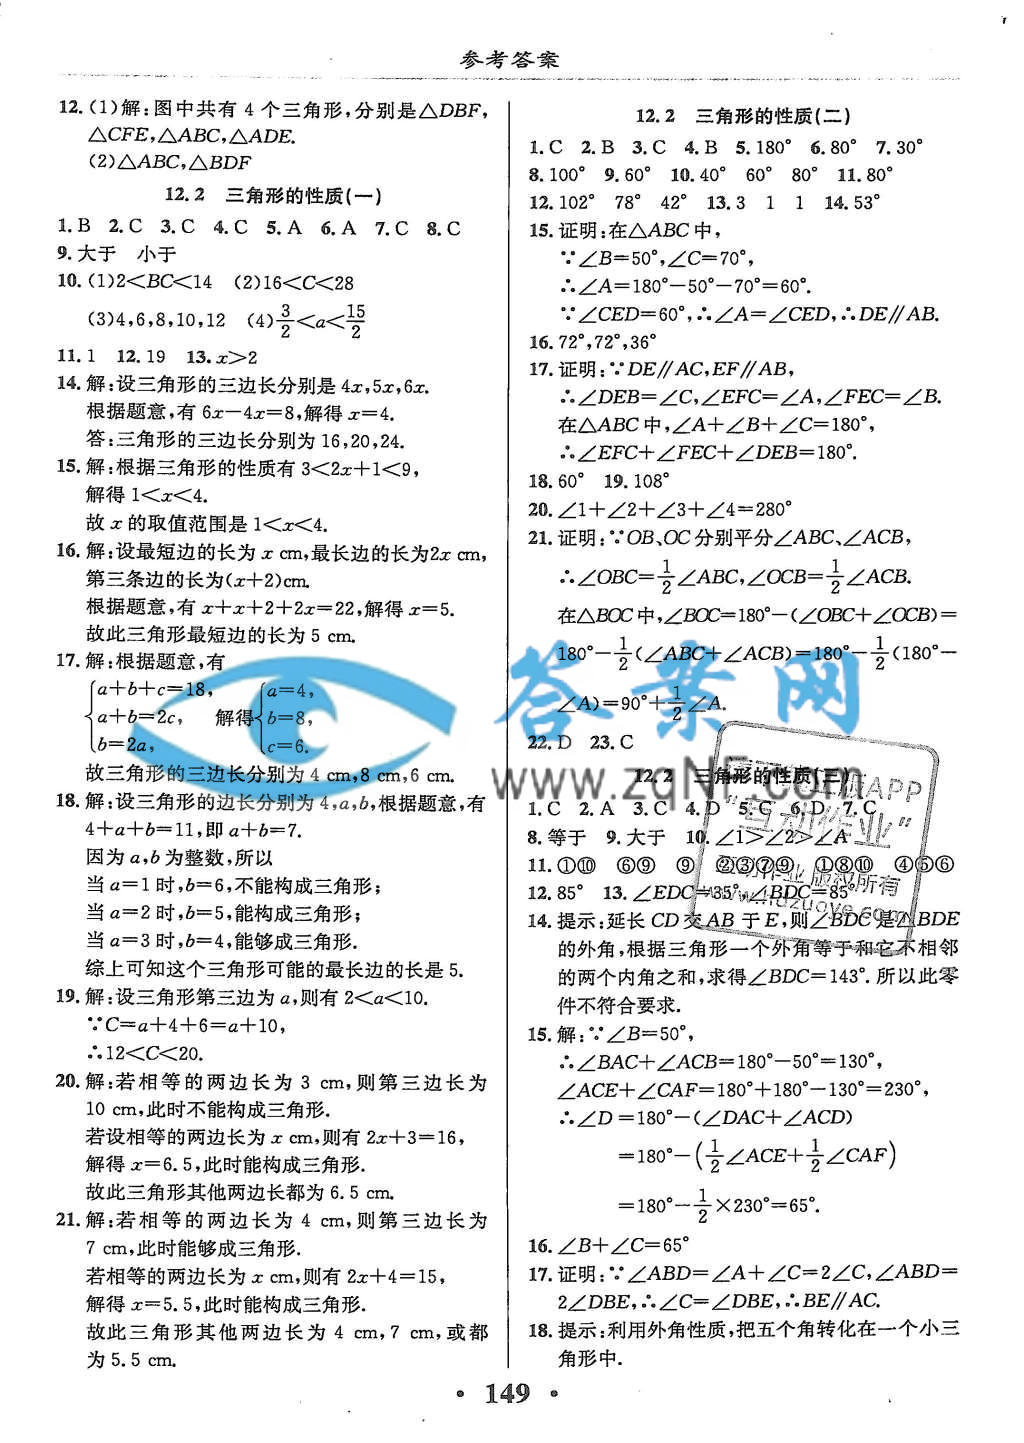 参考答案
12.(1)解:图中共有 4 个三角形,分别是△DBF,
△CFE,△ABC,△ADE.
(2)△ABC,△BDF
12.2 三角形的性质(一)
1.B 2.C 3.C 4.C 5.A 6.A 7.C 8.C
9.大于 小于
10.(1)2<BC<14 (2)16<C<28
(3)4,6,8,10,12 (4)3/2<a<15/2
11.1 12.19 13.x>2
14.解:设三角形的三边长分别是 4x,5x,6x.
根据题意,有 6x-4x=8,解得 x=4.
答:三角形的三边长分别为 16,20,24.
15.解:根据三角形的性质有 3<2x+1<9,
解得 1<x<4.
故 x 的取值范围是 1<x<4.
16.解:设最短边的长为 x cm,最长边的长为2x cm,
第三条边的长为(x+2)cm.
根据题意,有 x+x+2+2x=22,解得 x=5.
故此三角形最短边的长为 5 cm.
17.解:根据题意,有
{a+b+c=18, {a=4,
a+b=2c, 解得 b=8,
b=2a, c=6.
故三角形的三边长分别为 4 cm,8 cm,6 cm.
18.解:设三角形的边长分别为 4,a,b,根据题意,有
4+a+b=11,即 a+b=7.
因为 a,b 为整数,所以
当 a=1 时,b=6,不能构成三角形;
当 a=2 时,b=5,能构成三角形;
当 a=3 时,b=4,能够成三角形.
综上可知这个三角形可能的最长边的长是 5.
19.解:设三角形第三边为 a,则有 2<a<10.
∵C=a+4+6=a+10,
∴12<C<20.
20.解:若相等的两边长为 3 cm,则第三边长为
10 cm,此时不能构成三角形.
若设相等的两边长为 x cm,则有 2x+3=16,
解得 x=6.5,此时能构成三角形.
故此三角形其他两边长都为 6.5 cm.
21.解:若相等的两边长为 4 cm,则第三边长为
7 cm,此时能够成三角形.
若相等的两边长为 x cm,则有 2x+4=15,
解得 x=5.5,此时能构成三角形.
故此三角形其他两边长为 4 cm,7 cm,或都
为 5.5 cm.
12.2 三角形的性质(二)
1.C 2.B 3.C 4.B 5.180° 6.80° 7.30°
8.100° 9.60° 10.40° 60° 80° 11.80°
12.102° 78° 42° 13.3 1 1 14.53°
15.证明:在△ABC 中,
∵∠B=50°,∠C=70°,
∴∠A=180°-50°-70°=60°.
∵∠CED=60°,∴∠A=∠CED,∴DE∥AB.
16.72°,72°,36°
17.证明:∵DE∥AC,EF∥AB,
∴∠DEB=∠C,∠EFC=∠A,∠FEC=∠B.
在△ABC 中,∠A+∠B+∠C=180°,
∴∠EFC+∠FEC+∠DEB=180°.
18.60° 19.108°
20.∠1+∠2+∠3+∠4=280°
21.证明:∵OB、OC 分别平分∠ABC、∠ACB,
∴∠OBC=1/2∠ABC,∠OCB=1/2∠ACB.
在△BOC 中,∠BOC=180°-(∠OBC+∠OCB)=
180°-1/2(∠ABC+∠ACB)=180°-1/2(180°-
∠A)=90°+1/2∠A.
22.D 23.C
12.2 三角形的性质(三)
1.C 2.A 3.C 4.D 5.C 6.D 7.C
8.等于 9.大于 10.∠1>∠2>∠A
11.①⑩ ⑥⑨ ⑨ ②③⑦⑨ ①⑧⑩ ④⑤⑥
12.85° 13.∠EDC=35°,∠BDC=85°
14.提示:延长 CD 交 AB 于 E,则∠BDC 是△BDE
的外角,根据三角形一个外角等于和它不相邻
的两个内角之和,求得∠BDC=143°.所以此零
件不符合要求.
15.解:∵∠B=50°,
∴∠BAC+∠ACB=180°-50°=130°,
∠ACE+∠CAF=180°+180°-130°=230°,
∴∠D=180°-(∠DAC+∠ACD)
=180°-(1/2∠ACE+1/2∠CAF)
=180°-1/2×230°=65°.
16.∠B+∠C=65°
17.证明:∵∠ABD=∠A+∠C=2∠C,∠ABD=
2∠DBE,∴∠C=∠DBE,∴BE∥AC.
18.提示:利用外角性质,把五个角转化在一个小三
角形中.
• 149 •
答案网
www.zqNF.com